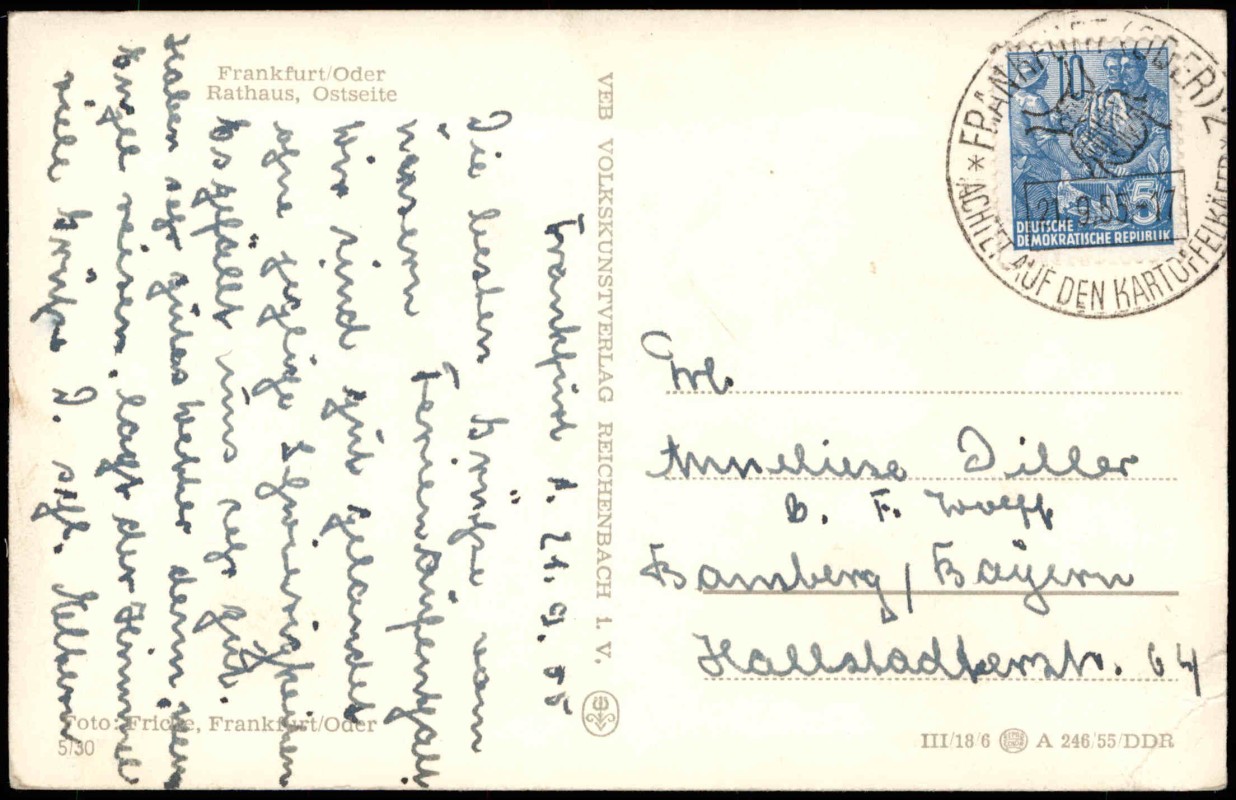 Frankfurt/Oder
Rathaus, Ostseite
Frankfurt d. 21. 9. 55
Die besten Grüße vom
unsern Ferienaufenthalt
Wir sind gut gelandet
ohne jegliche Schwierigkeiten
Es gefällt uns sehr gut.
Haben sehr gutes Wetter denn wenn
Engel reisen, lacht der Himmel
viele Grüße D. sqft.
VEB VOLKSKUNSTVERLAG REICHENBACH I. V.
Foto: Fricke, Frankfurt/Oder
5/30
10
5
DEUTSCHE
DEMOKRATISCHE REPUBLIK
* FRANKFURT (ODER) 2 *
21.9.55-17
ACHTET AUF DEN KARTOFFELKÄFER
Frl.
Anneliese Diller
b. F. Wolff
Bamberg / Bayern
Hallstadterstr. 64
III/18/6 A 246/55/DDR